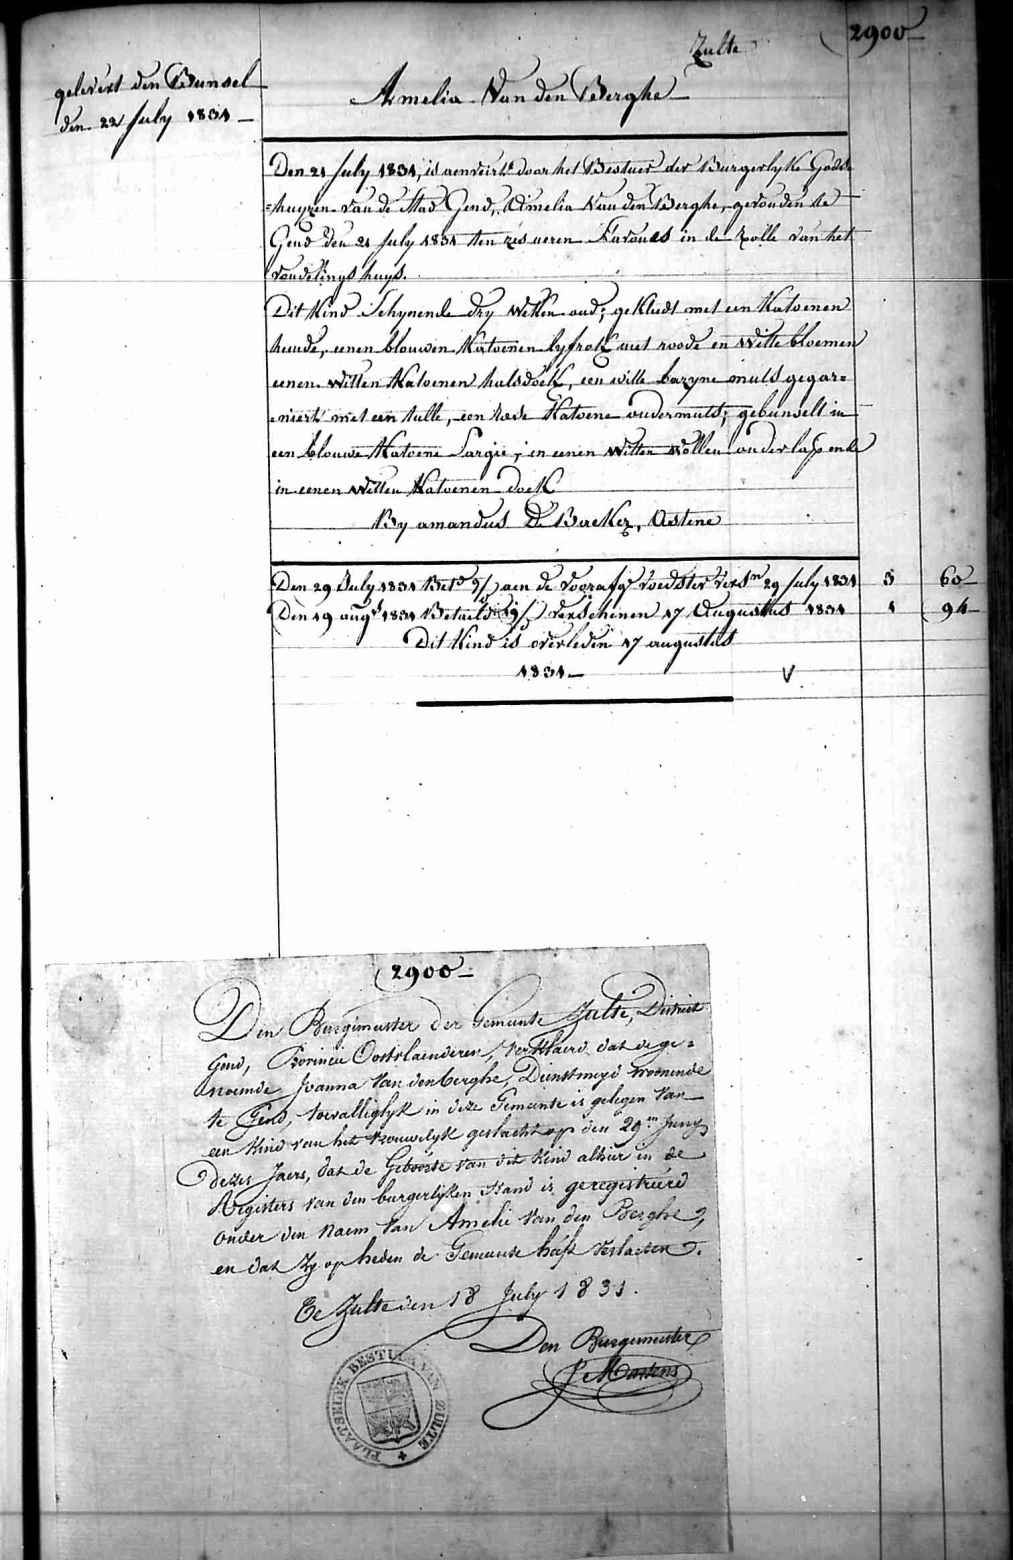 Zulte
2900
gelevert den Bunsel
den 22 july 1831
Amelia Van den Berghe
Den 21 july 1831, is aenveirt door het Bestuer der Burgerlyke Gods=
=huyzen van de Stad Gend, Amelia Van den Berghe, gevonden te
Gend den 21 july 1831 ten zes ueren s'avonds in de rolle van het
vondelings huys.
Dit Kind Schynende dry Weken oud; gekleedt met een Katoenen
hemde, eenen blouwen Katoenen lyfrok met roode en Witte bloemen
eenen Witten Katoenen halsdoek, een witte bazyne muts gegar=
=niert met een tulle, een rode Katoene ondermuts; gebunselt in
een blouwe Katoene Sargie, in eenen Witten Wollen onderlap ende
in eenen Witten Katoenen doek
By amandus De Backer, Astene
Den 29 July 1831 aen de voedster 29 july 1831 3 60
Den 19 augt 1831 Betaeld verschenen 17 Augustus 1831 1 94
Dit Kind is overleden 17 augustus
1831 V
2900
Den Burgimeester der Gemeente Zulte, District
Gend, Provincie Oostvlaenderen, verklaerd dat de ge=
noemde Joanna Van den berghe, Dienstmeyd woonende
te Gend, toevalliglyk in deze Gemeente is gelegen Van
een Kind van het vrouwelyk geslacht op den 29en Juny
dezes Jaers, dat de Geboorte van dit Kind alhier in de
Registers van den burgerlyken stand is geregistreerd
onder den naem Van Amelie Van den Berghe,
en dat Zy op heden de Gemeente heeft verlaeten.
Te Zulte den 18 July 1831.
Den Burgemeester
J Martens
PLAATSELYK BESTUUR VAN ZULTE